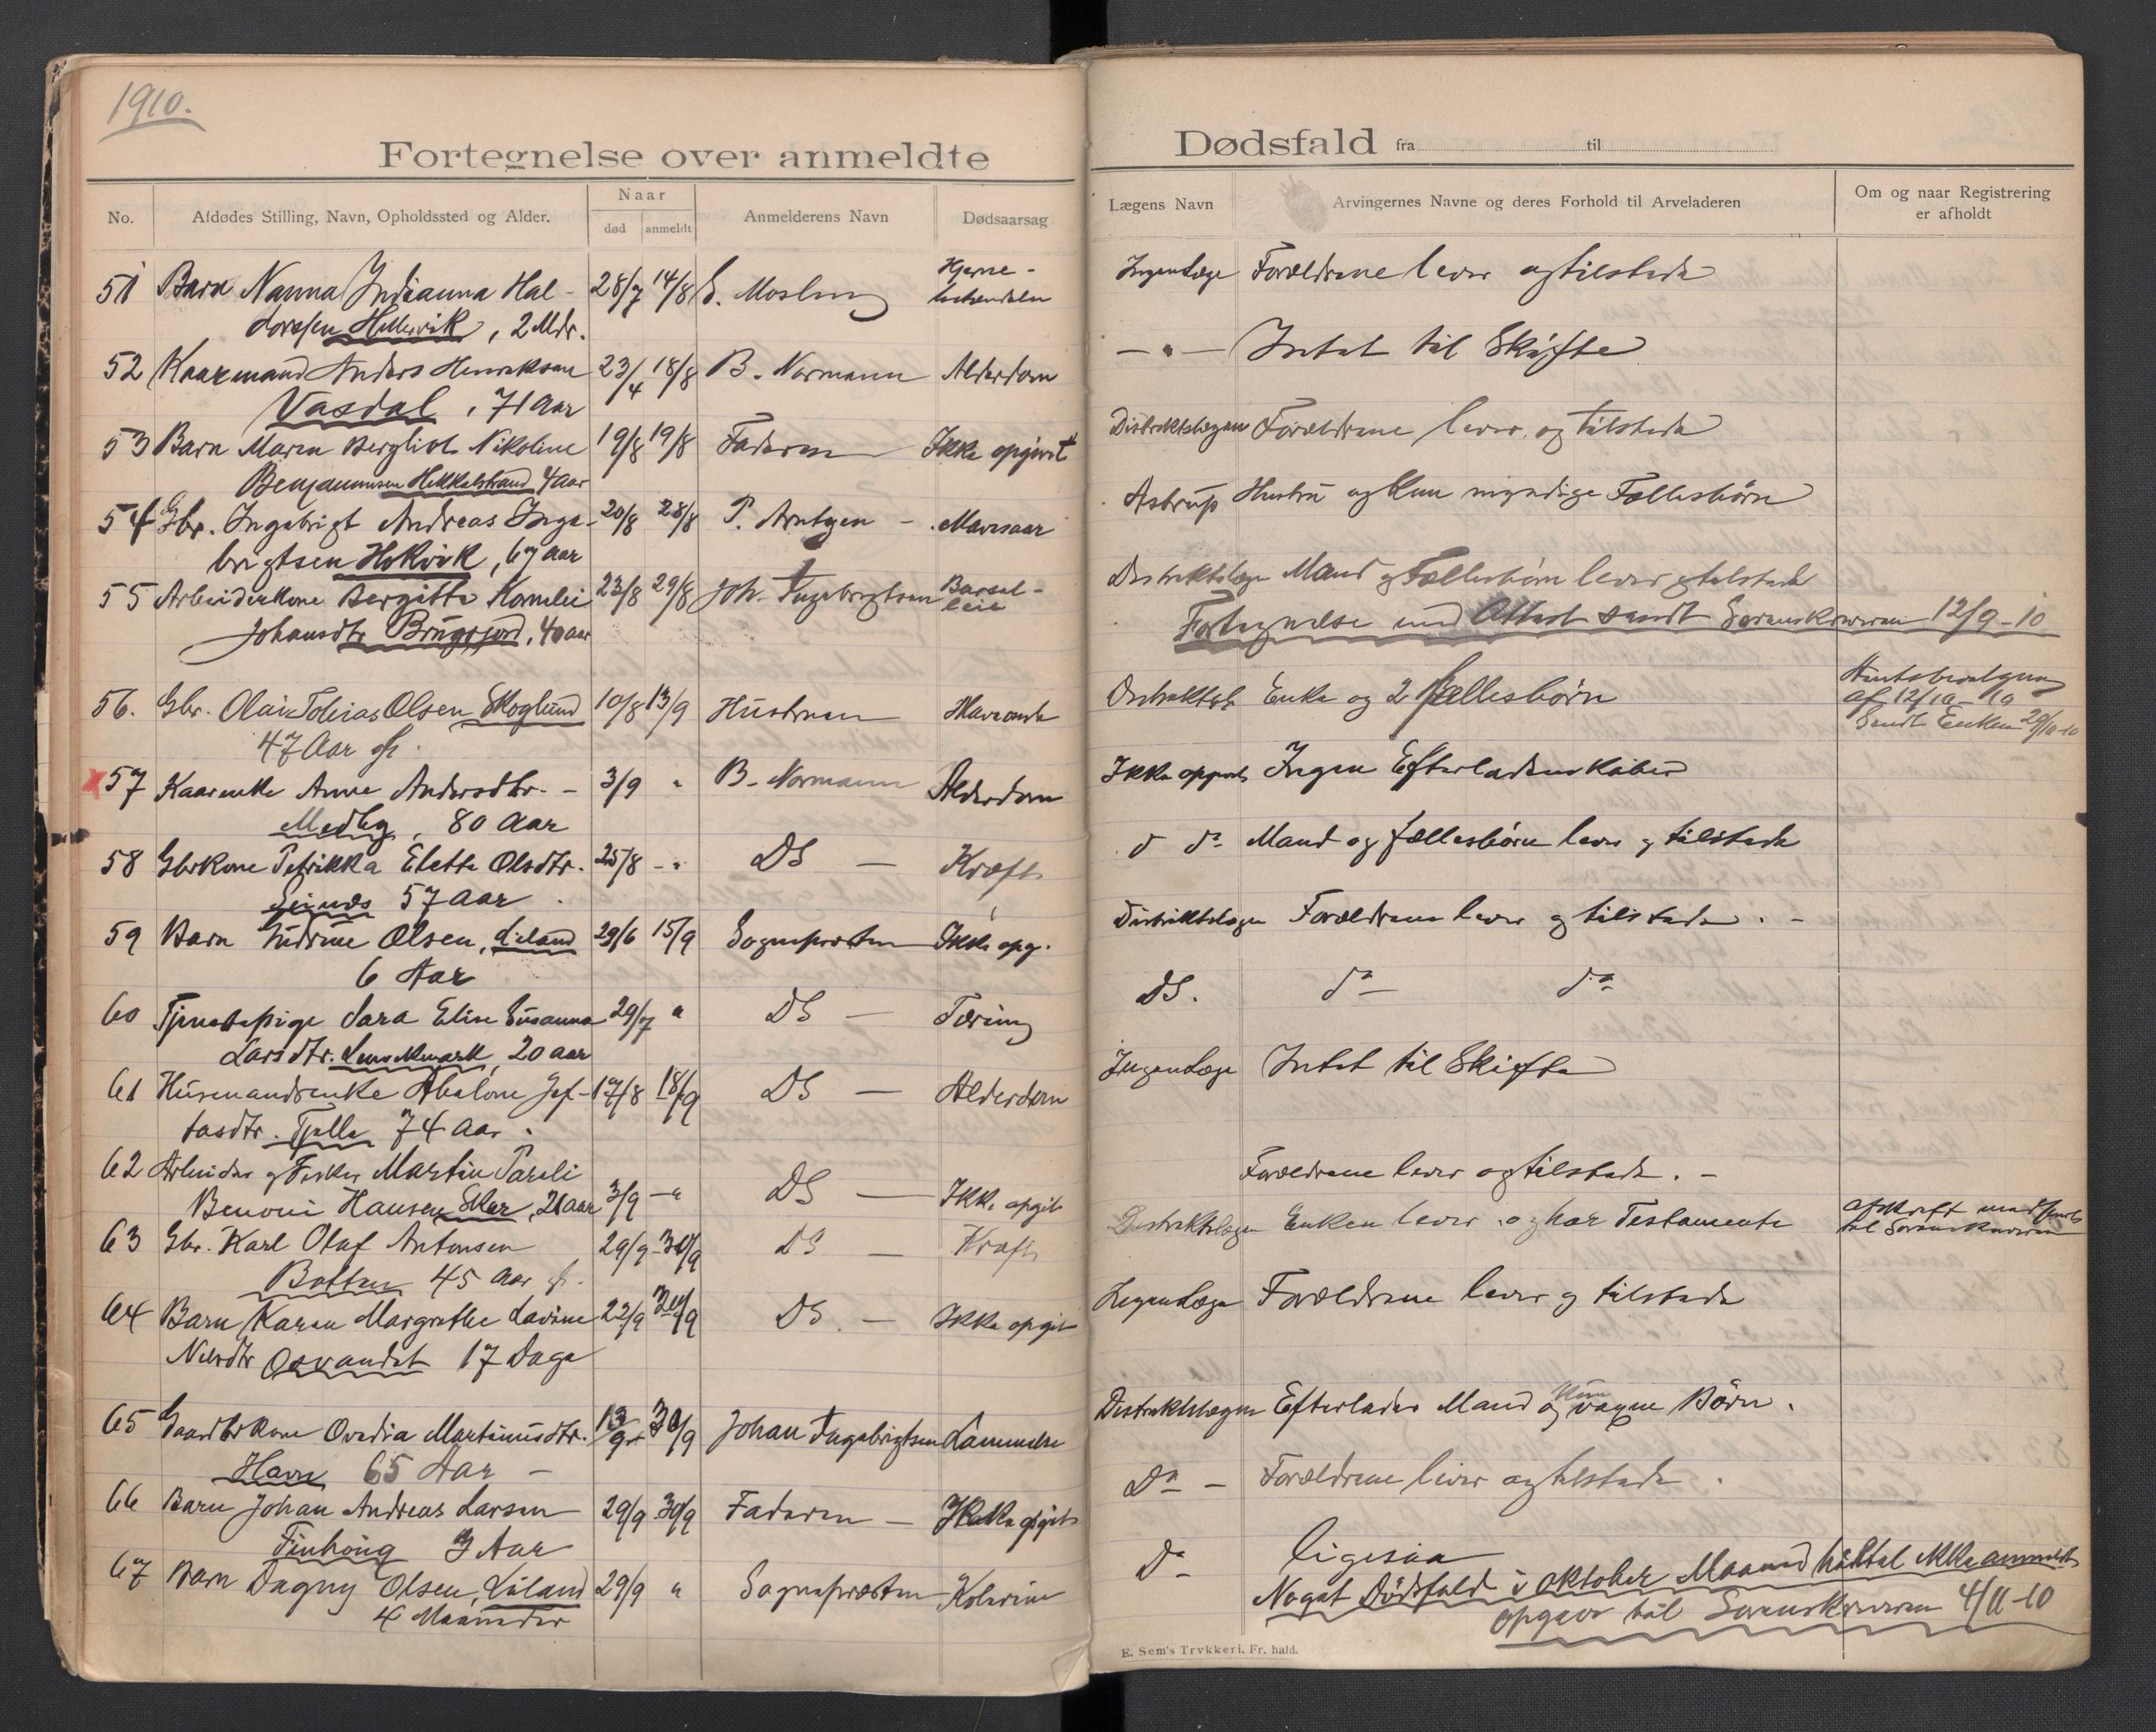 1910.
Fortegnelse over anmeldte
No.
Afdødes Stilling, Navn, Opholdssted og Alder.
Naar
død
anmeldt
Anmelderens Navn
Dødsaarsag
51 Barn Nanna Indianna Hal- 28/7 14/8 E. Mosling Hjerne-
dorssen Hellervik, 2 Mdr.
52 Kaarmand Anders Henriksen 23/4 18/8 B. Normann Alderdom
Vasdal, 71 Aar
53 Barn Maren Bergliot Nikoline 19/8 19/8 Faderen Ikke opgivet
Benjaminsen Hekkelstrand 4 Aar
54 Gbr. Ingebrigt Andreas Inge- 20/8 28/8 P. Arntzen - Mavesaar
brigtsen Hokvik, 67 Aar
55 Arbeiderkone Bergitte Kornelie 23/8 29/8 Joh. Ingebrigtsen Barsel-
leie
Johansdtr Brugsjord, 40 aar
56. Gbr. Olai Tobias Olsen Skoglund 10/8 13/9 Hustruen Maveonde
47 Aar
57 Kaarenke Anne Andersdtr. - 3/9 " B. Normann Alderdom
Medby, 80 Aar
58 Gbrkone Petrikka Eletta Olsdtr. 25/8 - " DS — Kræft
Seines 57 Aar
59 Barn Gudrun Olsen, Liland 29/6 15/9 Sognepresten Ikke opg.
6 Aar
60 Tjenestepige Sara Elise Susanna 29/7 " DS — Tæring
Larsdtr. Lensmark, 20 aar
61 Husmandsenke Abelone Jef- 17/8 18/9 DS — Alderdom
tasdtr. Tjelle 74 Aar.
62 Arbeider og Fisker Martin Pareli
Benoni Hansen Sker, 21 aar 3/9 - " DS — Ikke opgit
63 Gbr. Karl Olaf Antonsen 29/9 30/9 DS — Kræft
Botten 45 Aar
64 Barn Karen Margrethe Lavine 22/9 30/9 DS. — Ikke opgit
Nilsdtr Osvandet 17 Dage
65 Gaardbrkone Ovedia Martinusdtr. 13/9 30/9 Johan Ingebrigtsen Lammelse
Havn 65 Aar -
66 Barn Johan Andreas Larsen 29/9 30/9 Faderen — Ikke opgit
3 Aar
67 Barn Dagny Olsen, Liland 29/9 " Sognepræsten Kolerine
4 Maaneder
Dødsfald fra til
Lægens Navn
Arvingernes Navne og deres Forhold til Arveladeren
Om og naar Registrering
er afholdt
Ingen Læge Forældrene lever og tilstede
— " — Intet til Skifte
Distriktslægen Forældrene lever og tilstede
Astrup Hustru og kun myndige Fællesbørn
Distriktslæge Mand og Fællesbørn lever og tilstede
Fortegnelse med Attest sendt Sorenskriveren 12/9-10
Distriktsl. Enke og 2 fællesbørn
af 12/10-10
Sendt Enken 29/10-10
Ikke opgivet Ingen Efterladenskaber
d do Mand og fællesbørn lever og tilstede
Distriktslægen Forældrene lever og tilstede. -
DS. do — do
Ingen Læge Intet til Skifte
Forældrene lever og tilstede. -
Distriktslægen Enken lever og har Testamente
Afskrift medsendt
til Sorenskriveren
Ingen Læge Forældrene lever og tilstede
Distriktslægen Efterlader Mand og kun voxne Børn.
Do - Forældrene lever og tilstede.
Do ligesaa
Noget Dødsfald i Oktober Maaned hidtil ikke anmeldt
opgave til Sorenskriveren 4/11-10
E. Sem's Trykkeri, Fr. hald.